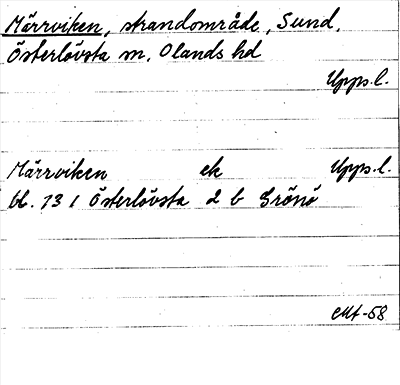 Märrviken, strandområde, Sund,
Österlövsta sn, Olands hd
Upps. l.
Märrviken ek Upps. l.
bl. 13 I Österlövsta 2 b Grönö
EMt-58